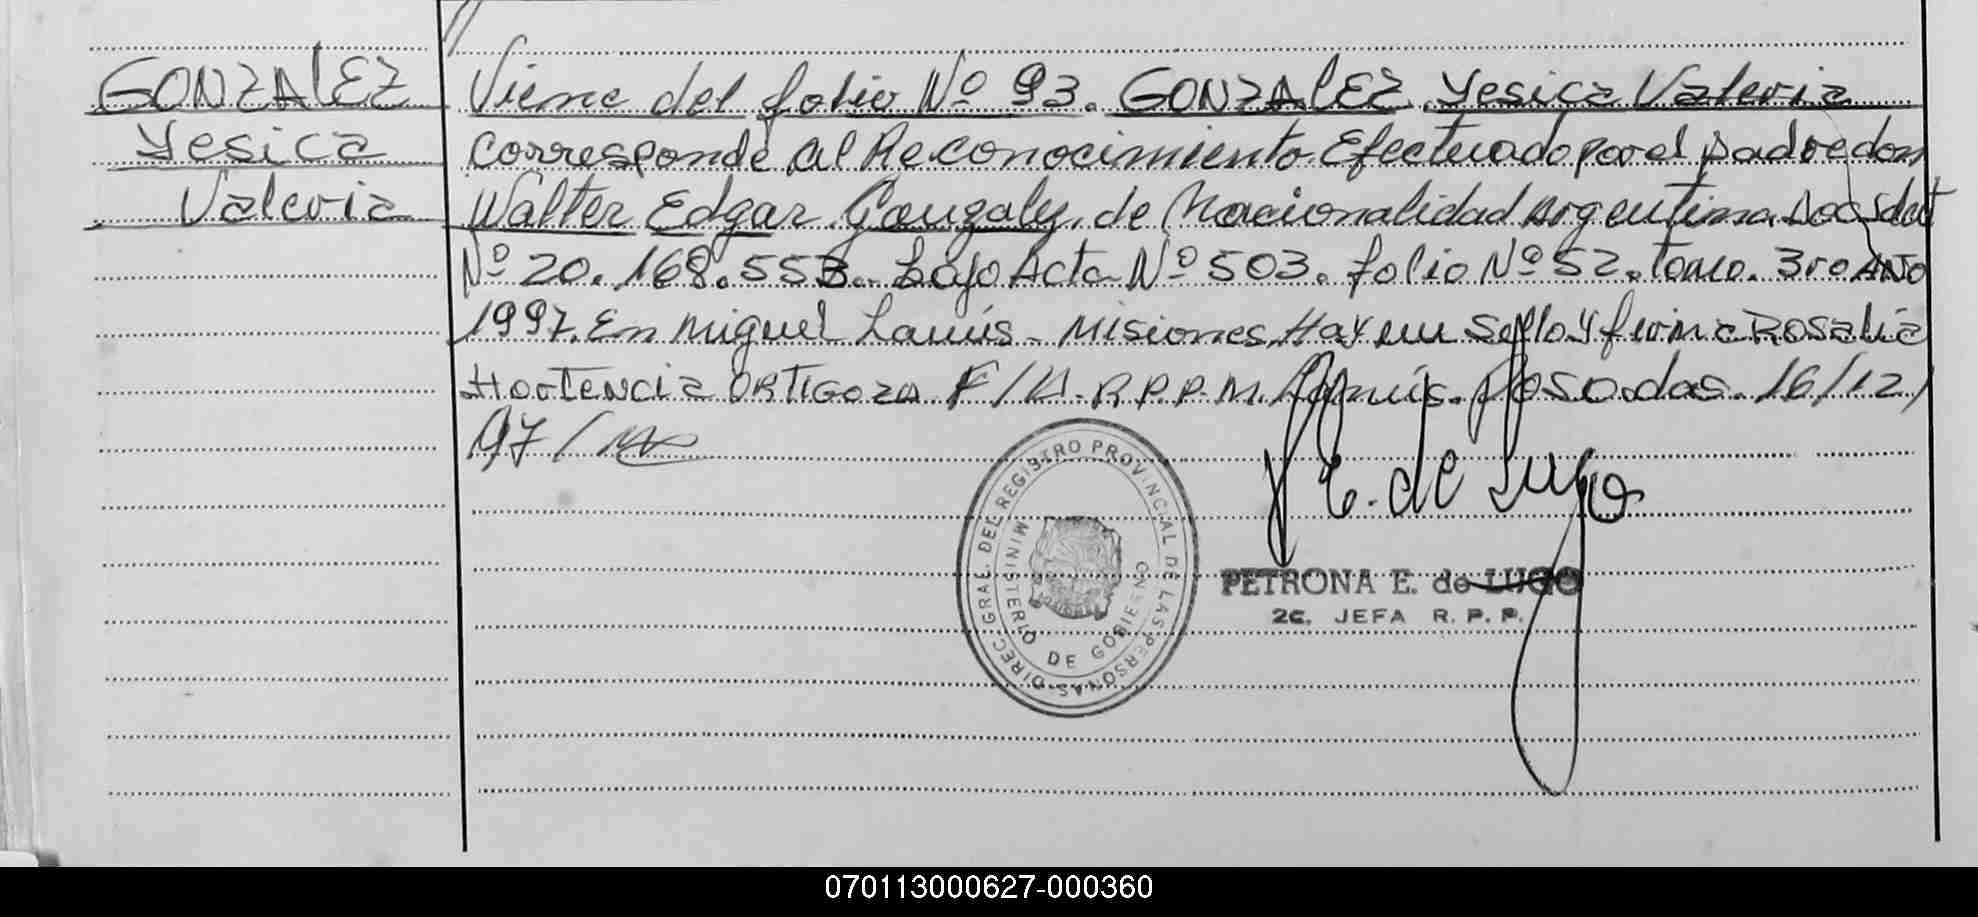 GONZALEZ
Yesica
Valeria
Viene del folio Nº 93. GONZALEZ, Yesica Valeria
corresponde al Reconocimiento Efectuado por el padre don
Walter Edgar Gonzalez, de Nacionalidad Argentina. Doc Ident
Nº 20.168.553.- bajo Acta Nº 503. folio Nº 52. Tomo. 3ro AÑO
1997. En Miguel Lanús - Misiones. Hay un Sello y firma Rosalia
Hortencia ORTIGOZA F/A. R.P.P.M. Lanús. Posadas. 16/12/
97/
P E. de Lugo
DIREC. GRAL. DEL REGISTRO PROVINCIAL DE LAS PERSONAS
MINISTERIO DE GOBIERNO
PETRONA E. de LUGO
2C. JEFA R. P. P.
070113000627-000360